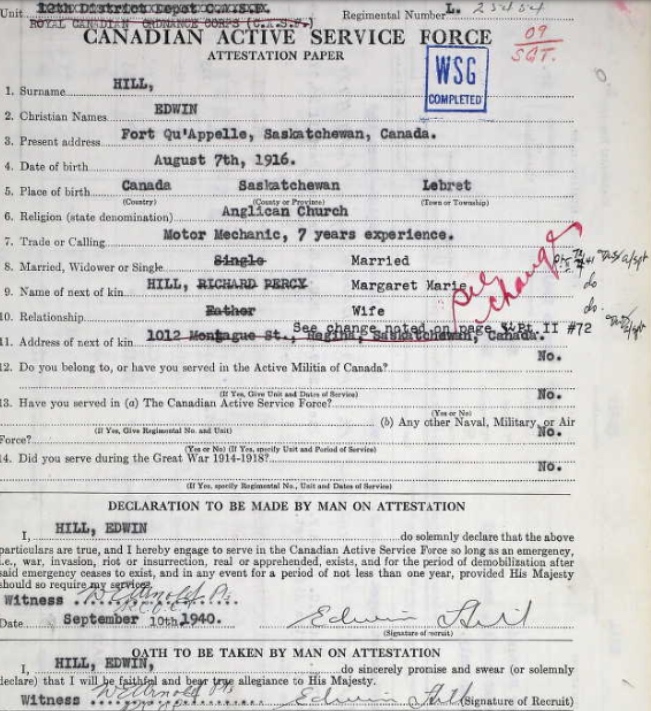 Unit 12th District Depot C.A.S.F. Regimental Number L.
ROYAL CANADIAN ORDNANCE CORPS (C.A.S.F.)
CANADIAN ACTIVE SERVICE FORCE
09
SGT.
ATTESTATION PAPER
WSG
COMPLETED
1. Surname HILL,
2. Christian Names EDWIN
3. Present address Fort Qu'Appelle, Saskatchewan, Canada.
4. Date of birth August 7th, 1916.
5. Place of birth Canada Saskatchewan Lebret
(Country) (County or Province) (Town or Township)
6. Religion (state denomination) Anglican Church
7. Trade or Calling Motor Mechanic, 7 years experience.
8. Married, Widower or Single Single Married
9. Name of next of kin HILL, RICHARD PERCY Margaret Marie
do
see change
10. Relationship Father Wife
do.
See change noted on page Pt. II #72
11. Address of next of kin 1012 Montague St., Regina, Saskatchewan, Canada.
12. Do you belong to, or have you served in the Active Militia of Canada? No.
(If Yes, Give Unit and Dates of Service)
13. Have you served in (a) The Canadian Active Service Force? No.
(Yes or No)
(If Yes, Give Regimental No. and Unit) (b) Any other Naval, Military, or Air
Force? No.
(Yes or No) (If Yes, specify Unit and Period of Service)
14. Did you serve during the Great War 1914-1918? No.
(If Yes, specify Regimental No., Unit and Dates of Service)
DECLARATION TO BE MADE BY MAN ON ATTESTATION
I, HILL, EDWIN do solemnly declare that the above
particulars are true, and I hereby engage to serve in the Canadian Active Service Force so long as an emergency,
i.e., war, invasion, riot or insurrection, real or apprehended, exists, and for the period of demobilization after
said emergency ceases to exist, and in any event for a period of not less than one year, provided His Majesty
should so require my services.
Witness
Date September 10th, 1940. Edwin Hill
(Signature of recruit)
OATH TO BE TAKEN BY MAN ON ATTESTATION
I, HILL, EDWIN, do sincerely promise and swear (or solemnly
declare) that I will be faithful and bear true allegiance to His Majesty.
Witness Edwin Hill (Signature of Recruit)